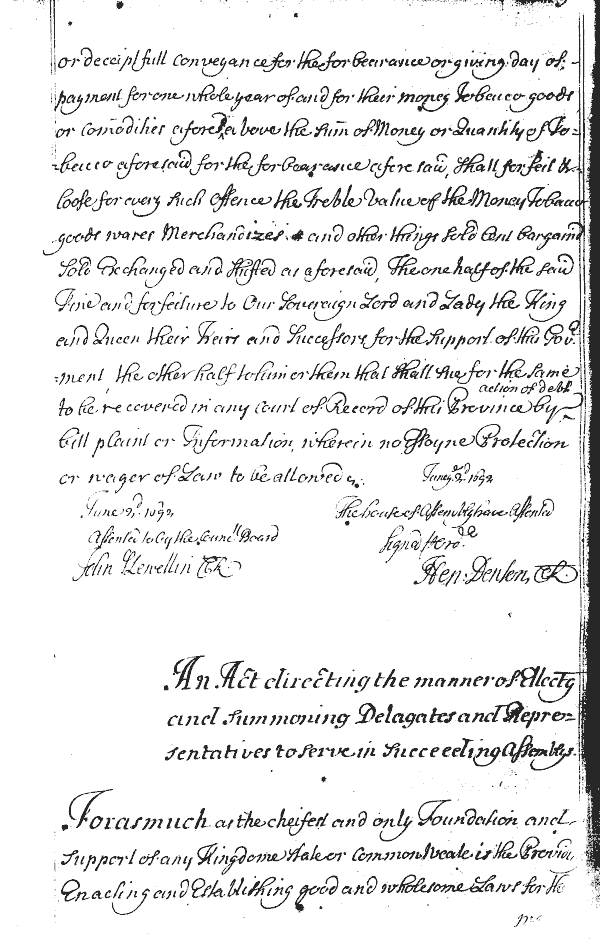 or deceiptfull Conveyance for the forbearance or giving day of
payment for one whole year of and for their money Tobacco goods
or comodities afores.d above the Sum̄ of Money or Quantity of To-
-bacco aforesaid for the forbearance aforesaid, Shall forfeit &
loose for every such Offence the Treble Value of the Money Tobacco
goods wares Merchandizes and other things Sold Lent bargaind
Sold Exchanged and Shifted as aforesaid, The one half of the said
Fine and forfeiture to Our Sovereign Lord and Lady the King
and Queen their Heirs and Successors for the Support of this Gov.r
-ment, the other half to him or them that shall sue for the same
action of debt
to be recovered in any Court of Record of this Province by
bill plaint or Information, wherein no Essoyne Protection
or wager of Law to be allowed
June 2.d 1692
June 2.d 1692
The house of Assembly have Assented
Assented to by the Councill Board
Signd p ord.r
John Llewellin Clk.
Hen: Denton, Clk.
An Act directing the manner of Electg
and summoning Delagates and Repre-
sentatives to serve in succeeding Assemblys.
Forasmuch as the cheifest and only Foundation and
Support of any Kingdome State or Common Weale is the Providg
Enacting and Establishing good and wholesome Laws for the